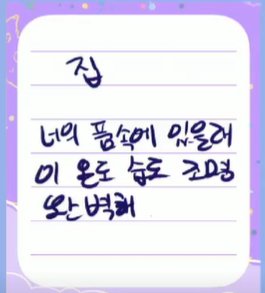 집
너의 품속에 있을래
이 온도 습도 조명
완벽해